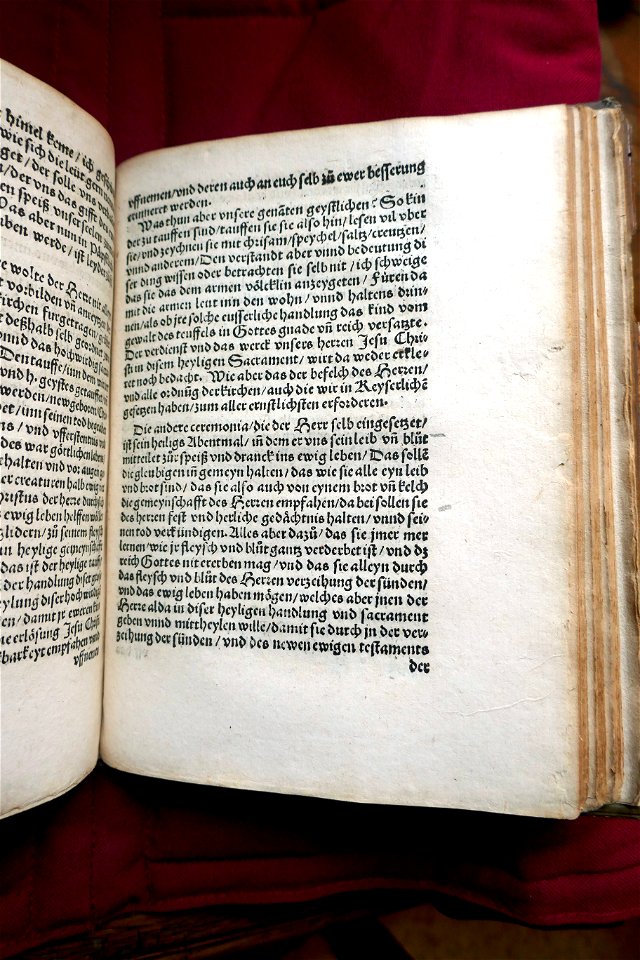 hümel keme / ich
wie sich die leüt gern
get / der solle vns
/ der vns das gifft
speiß vnser seelen
Das aber nun in
ben werde / ist leyder
e wolte der Herre
vorbilden vñ
kirchen fürgetragen /
deßhalb selb
vnnd das hochwirdig
Den tauffe / inn dem
vnd h. geystes getaufft
werden / newgeboren
et / inn seinen tod
ns / vnd vfferstentnus
des war göttlichen
ehalten vnd vor augen
er creaturen halb
hristus der herre durch
ewig leben helffen wölle
zlidern / zů seinem fleysch
in heylige gemeynschafft
das ist der heylige
der handlung diser
eylung diser hochwirdigẽ
en / damit jr
ie erlösung Jesu Christi
barkeyt empfahen vnnd
vffnemen
vffnemen / vnd deren auch an euch selb zů ewer besserung
erinneret werden.
Was thun aber vnsere genãten geystlichen? So kin
der zu tauffen sind / tauffen sie sie also hin / lesen vil vber
sie / vnd zeychnen sie mit chrisam / speychel / saltz / creutzen /
vnnd anderem / Den verstandt aber vnnd bedeutung di
ser ding wissen oder betrachten sie selb nit / ich schweige
das sie das dem armen völcklin anzeygeten / Füren da
mit die armen leut inn den wohn / vnnd haltens dün-
nen / als ob jre solche eusserliche handlung das kind vom
gewalt des teuffels in Gottes gnade vñ reich versatzte.
Der verdienst vnd das werck vnsers herren Jesu Chri-
sti in disem heyligen Sacrament / wirt da weder erkle-
ret noch bedacht. Wie aber das der befelch des Herren /
vnd alle ordnũg der kirchen / auch die wir in Keyserlichẽ
gesetzen haben / zum aller ernstlichsten erforderen.
Die andere ceremonia / die der Herr selb eingesetzet /
ist sein heiligs Abentmal / iñ dem er vns sein leib vñ blůt
mitteilet zůr speiß vnd dranck ins ewig leben / Das sollẽ
die gleubigen iñ gemeyn halten / das wie sie alle eyn leib
vnd brot sind / das sie also auch von eynem brot vñ kelch
die gemeynschafft des Herren empfahen / da bei sollen sie
des herren fest vnd herliche gedächtnis halten / vnnd sei-
nen tod verkündigen. Alles aber dazů / das sie jmer mer
lernen / wie jr fleysch vnd blůt gantz verderbet ist / vnd dz
reich Gottes nit ererben mag / vnd das sie alleyn durch
das fleysch vnd blůt des Herzen verzeihung der sünden /
vnd das ewig leben haben mögen / welches aber jnen der
Herre alda in diser heyligen handlung vnd sacrament
geben vnnd mittheylen wille / damit sie durch in der ver-
zeihung der sünden / vnd des newen ewigen testaments
der